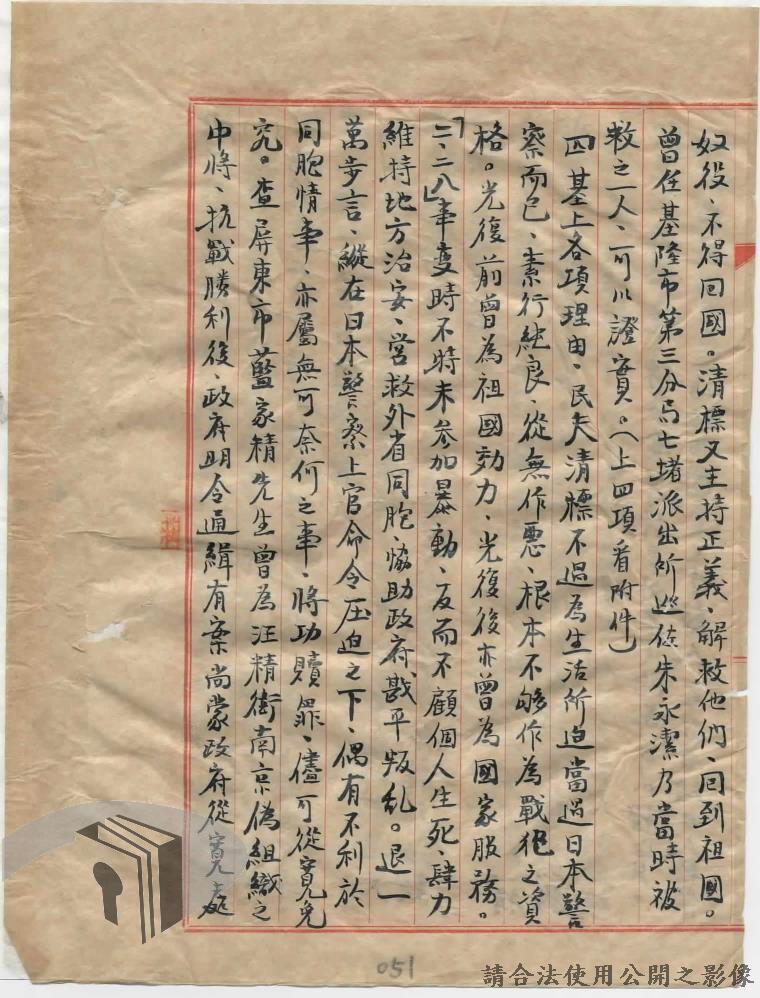 奴役、不得回國。清標又主持正義、解救他們、回到祖國。
曾任基隆市第三分局七堵派出所巡佐朱永潔乃當時被
救之一人、可以證實。(上四項看附件)
四 基上各項理由、民夫清標不過為生活所迫當過日本警
察而已、素行純良、從無作惡、根本不够作為戰犯之資
格。光復前曾為祖國効力、光復後亦曾為國家服務。
「二、二八」事變時不特未参加暴動、反而不顧個人生死、肆力
維持地方治安、営救外省同胞、恊助政府戡平叛乱。退一
萬步言、縱在日本警察上官命令压迫之下、偶有不利於
同胞情事、亦屬無可奈何之事、將功贖罪、儘可從寬免
究。查屏東市藍家精先生曾為汪精衛南京偽組織之
中將、抗戰勝利後、政府明令通緝有案尚蒙政府從寬處
051
請合法使用公開之影像